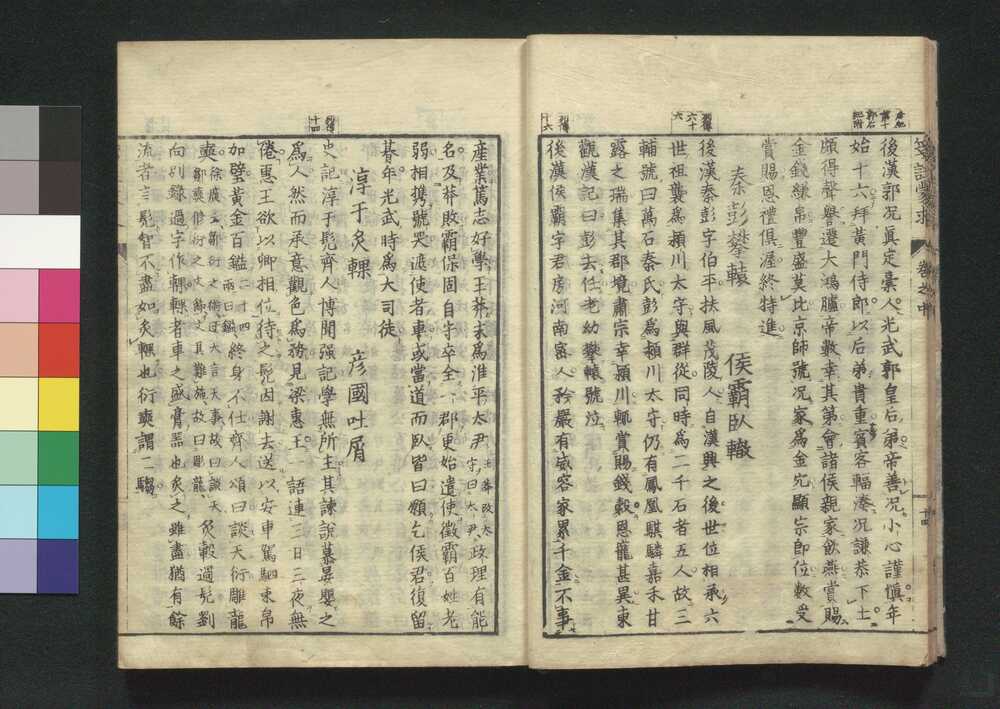 後漢郭况眞定槀人光武郭皇后弟帝善况小心謹愼年
始十六拜黃門侍郎以后弟貴重賓客輻湊况謙恭下士
頗得聲譽遷大鴻臚帝數幸其第會諸侯親家飲燕賞賜
金錢縑帛豐盛莫比京師號况家爲金穴顯宗即位數受
賞賜恩禮俱渥終特進
秦彭攀轅 侯霸臥轍
後漢秦彭字伯平扶風茂陵人自漢興之後世位相承六
世祖襲爲潁川太守與群從同時爲二千石者五人故三
輔號曰萬石秦氏彭爲潁川太守仍有鳳凰騏驎嘉禾甘
露之瑞集其郡境肅宗幸潁川輒賞賜錢穀恩寵甚異東
觀漢記曰彭去任老幼攀轅號泣
後漢侯霸字君房河南密人矜嚴有威容家累千金不事
產業篤志好學王莽末爲淮平大尹王莽改太守曰大尹政理有能
名及莽敗霸保固自守卒全一郡更始遣使徵霸百姓老
弱相携號哭遮使者車或當道而臥皆曰願乞侯君復留
朞年光武時爲大司徒
淳于炙輠 彦國吐屑
史記淳于髡齊人博聞强記學無所主其諫說慕晏嬰之
爲人然而承意觀色爲務見梁惠王一語連三日三夜無
倦惠王欲以卿相位待之髡因謝去送以安車駕駟束帛
加璧黃金百鎰二十四兩曰鎰終身不仕齊人頌曰談天衍雕龍
奭
向別錄過字作輠輠者車之盛膏器也炙之雖盡猶有餘
流者言髡智不盡如炙輠也衍奭謂二騶